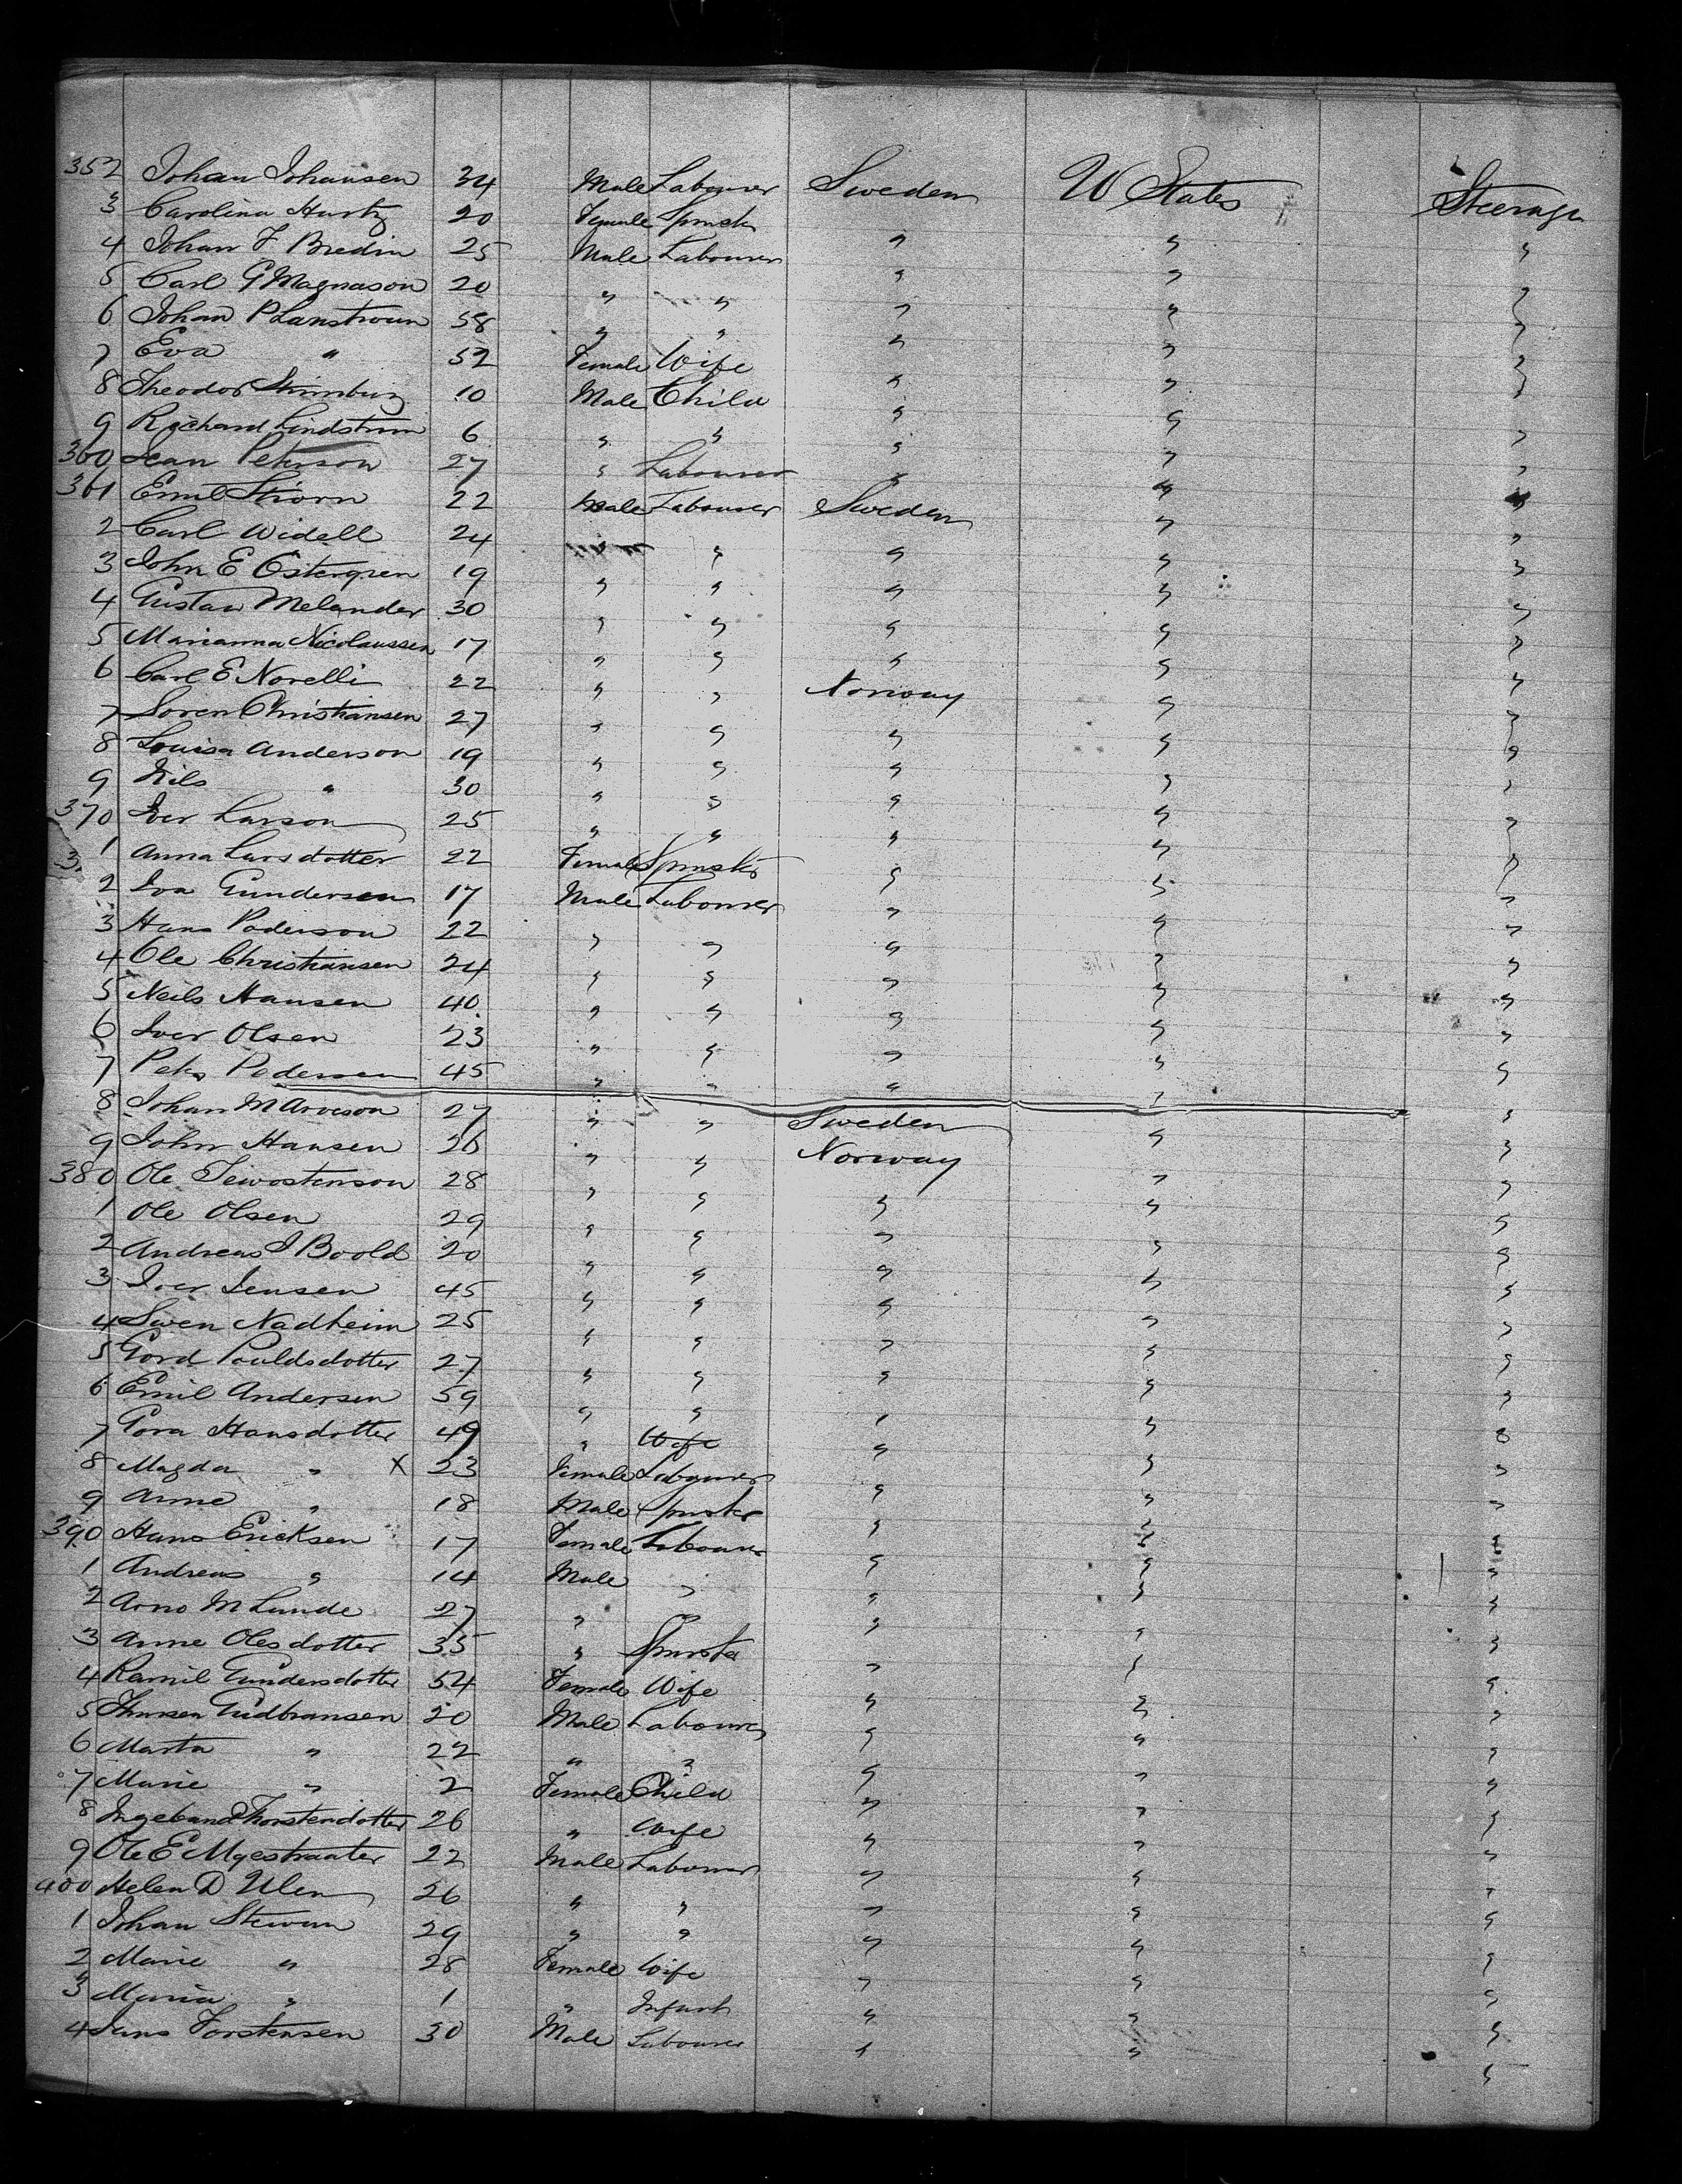 352 Johan Johansen 34 Male Labourer Sweden U States Steerage
3 Carolina Hurtz 20 Female Spinster
4 Johan F Bredin 25 Male Labourer " " "
5 Carl G Magnason 20 " " " " "
6 Johan P Lanstroum 58 " " " " "
7 Eva " 52 Female Wife " " "
8 Theodor 10 Male Child " " "
9 Richard Lindstrum 6 " " " " "
360 Jean Peterson 27 " Labourer " " "
361 Emil 22 Male Labourer Sweden " "
2 Carl Widell 24 " " " "
3 John E Ostergren 19 " " " " "
4 Gustav Melander 30 " " " " "
5 Marianna Nicolaussen 17 " " " " "
6 Carl E Norelli 22 " " Norway " "
7 Soren Christiansen 27 " " " " "
8 Louisa Anderson 19 " " " " "
9 Nils " 30 " " " " "
370 Iver Larson 25 " " " " "
1 Anna Larsdotter 22 Female Spinster " " "
2 Iva Gundersen 17 Male Labourer " " "
3 Hans Poderson 22 " " " " "
4 Ole Christiansen 24 " " " " "
5 Neils Hansen 40 " " " " "
6 Iver Olsen 23 " " " " "
7 Peter Pedersen 45 " " " " "
8 Johan M Arveson 27 " " Sweden " "
9 John Hansen 26 " " Norway " "
380 Ole 28 " " " " "
1 Ole Olsen 29 " " " " "
2 Andreas J Boold 20 " " " " "
3 Iver Jensen 45 " " " " "
4 Swen Nadheim 25 " " " " "
5 Gord Pouldsdotter 27 " " " " "
6 Emil Andersen 59 " " " " "
7 Gora Hansdotter 49 " Wife " " "
8 Magda " X 23 Female Labourer " " "
9 Anne " 18 Male Spinster " " "
390 Hans Ericksen 17 Female Labourer " " "
1 Andreas " 14 Male " " " "
2 Arno M Lunde 27 " " " " "
3 Anne Olesdotter 35 " Spinster " " "
4 Ramil Gundersdotter 54 Female Wife " " "
5 Gudbransen 20 Male Labourer " " "
6 Marta " 22 " " " " "
7 Marie " 2 Female Child " " "
8 Thorstendotter 26 " Wife " " "
9 Ole E Myestraater 22 Male Labourer " " "
400 Helen D Ulen 26 " " " " "
1 Johan 29 " " " " "
2 Marie " 28 Female Wife " " "
3 Maria " 1 " Infant " " "
4 Torstensen 30 Male Labourer " " "